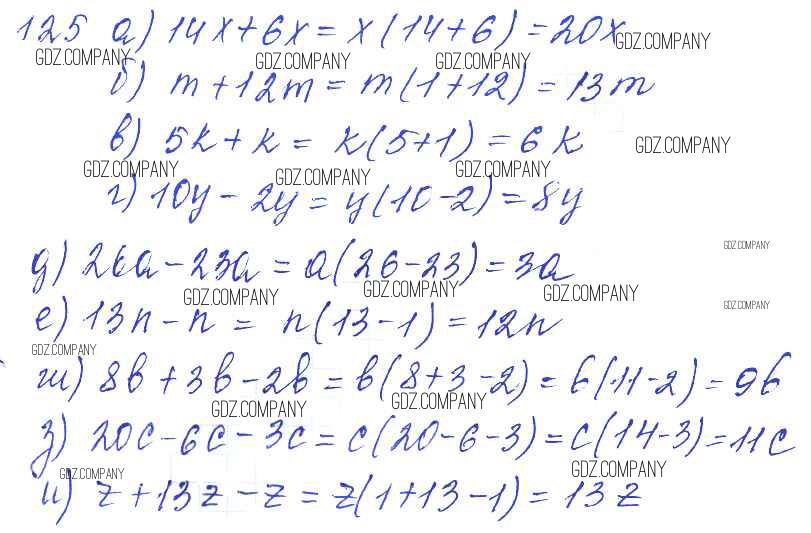 125 а) 14x + 6x = x(14+6) = 20x
GDZ.COMPANY GDZ.COMPANY GDZ.COMPANY GDZ.COMPANY
б) m + 12m = m(1+12) = 13m
в) 5k + k = k(5+1) = 6k GDZ.COMPANY
GDZ.COMPANY GDZ.COMPANY GDZ.COMPANY
г) 10y - 2y = y(10-2) = 8y
GDZ.COMPANY
д) 26a - 23a = a(26-23) = 3a
GDZ.COMPANY GDZ.COMPANY GDZ.COMPANY GDZ.COMPANY
е) 13n - n = n(13-1) = 12n
GDZ.COMPANY
ж) 8b + 3b - 2b = b(8+3-2) = b(11-2) = 9b
GDZ.COMPANY GDZ.COMPANY
з) 20c - 6c - 3c = c(20-6-3) = c(14-3) = 11c
GDZ.COMPANY GDZ.COMPANY
и) z + 13z - z = z(1+13-1) = 13z